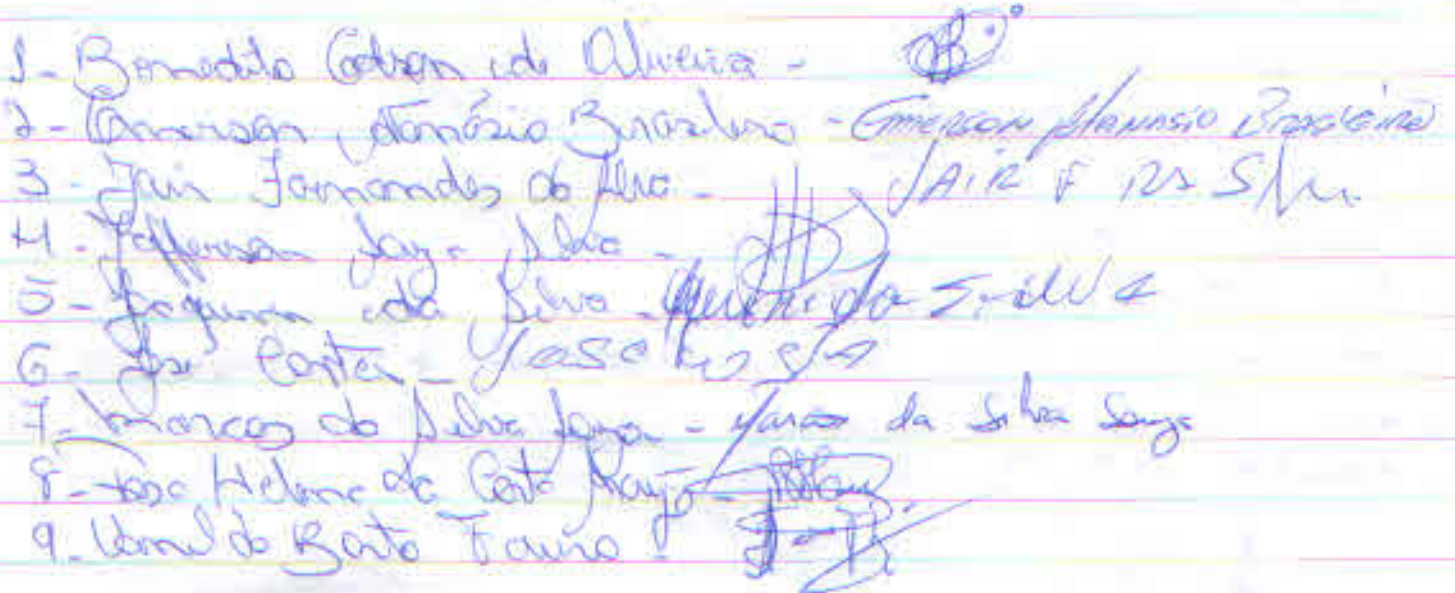 1- Benedito Edson de Oliveira -
2- Emerson Atanásio Brasileiro - Emerson Atanasio Brasileiro
3- Jair Fernandes da Silva - JAIR F da Silva
4- Jefferson Silva -
5- Joquim da Silva - da Silva
6- José Costa - José Costa
7- Marcos da Silva Souza - Marcos da Silva Souza
8- Rosa Helena da Costa Araújo -
9- Bento -